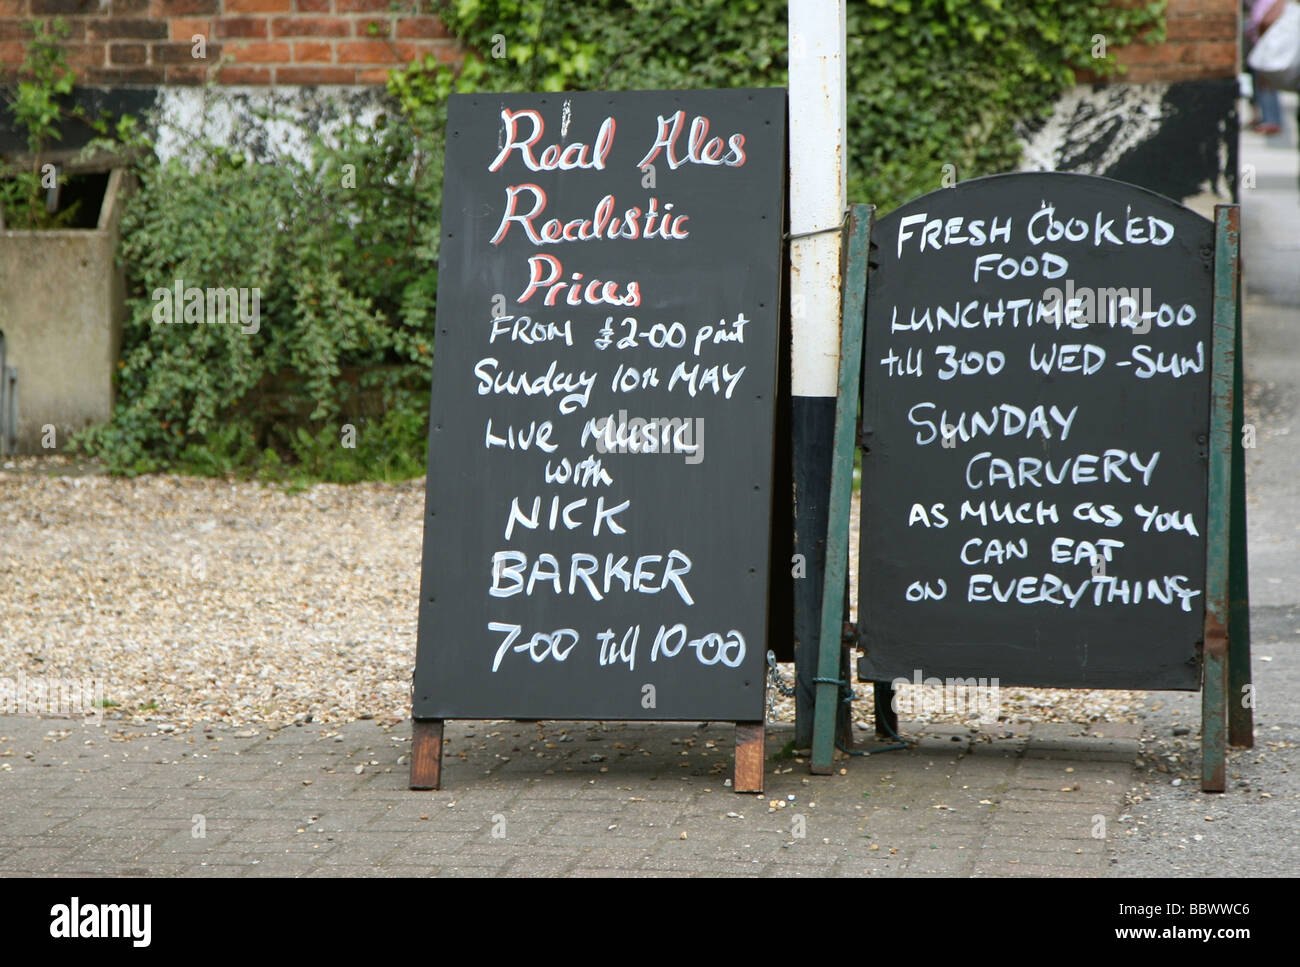 Real Ales
Realistic
Prices
FROM £2-00 pint
Sunday 10th MAY
LIVE MUSIC
with
NICK
BARKER
7-00 till 10-00
FRESH COOKED
FOOD
LUNCHTIME 12-00
till 3-00 WED - SUN
SUNDAY
CARVERY
AS MUCH as YOU
CAN EAT
ON EVERYTHING
alamy
Image ID: BBWWC6
www.alamy.com